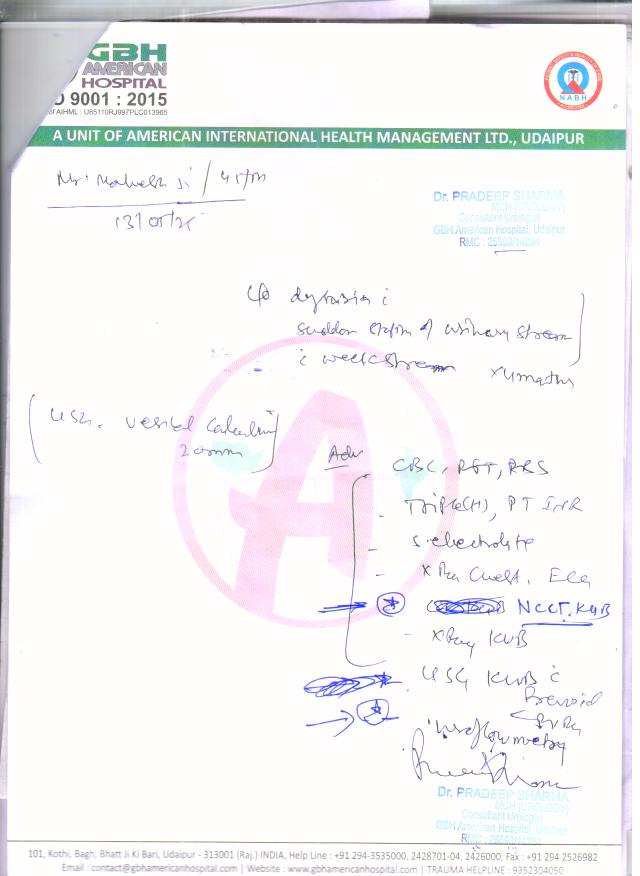 GBH
AMERICAN
HOSPITAL
O 9001 : 2015
of AIHML : U85110RJ997PLC013965
NABH
A UNIT OF AMERICAN INTERNATIONAL HEALTH MANAGEMENT LTD., UDAIPUR
Mr. Mahesh Ji / 45/m
13/05/25
Dr. PRADEEP SHARMA
MCH (UROLOGY)
Consultant Urologist
GBH American Hospital, Udaipur
RMC :
c/o
of urinary stream
c weak stream x 4 months
USG. Vesical Calculi
20mm
Adv
CBC, RFT, RBS
Triple (H), PT INR
S. electrolyte
X Ray Chest, ECG
NCCT. KUB
X Ray KUB
USG KUB c
Prevoid
PVR
Uroflowmetry
Dr. PRADEEP SHARMA
MCH (UROLOGY)
Consultant Urologist
GBH American Hospital, Udaipur
101, Kothi, Bagh, Bhatt Ji Ki Bari, Udaipur - 313001 (Raj.) INDIA, Help Line : +91 294-3535000, 2428701-04, 2426000, Fax : +91 294 2526982
Email : contact@gbhamericanhospital.com | Website : www.gbhamericanhospital.com | TRAUMA HELPLINE : 9352304050